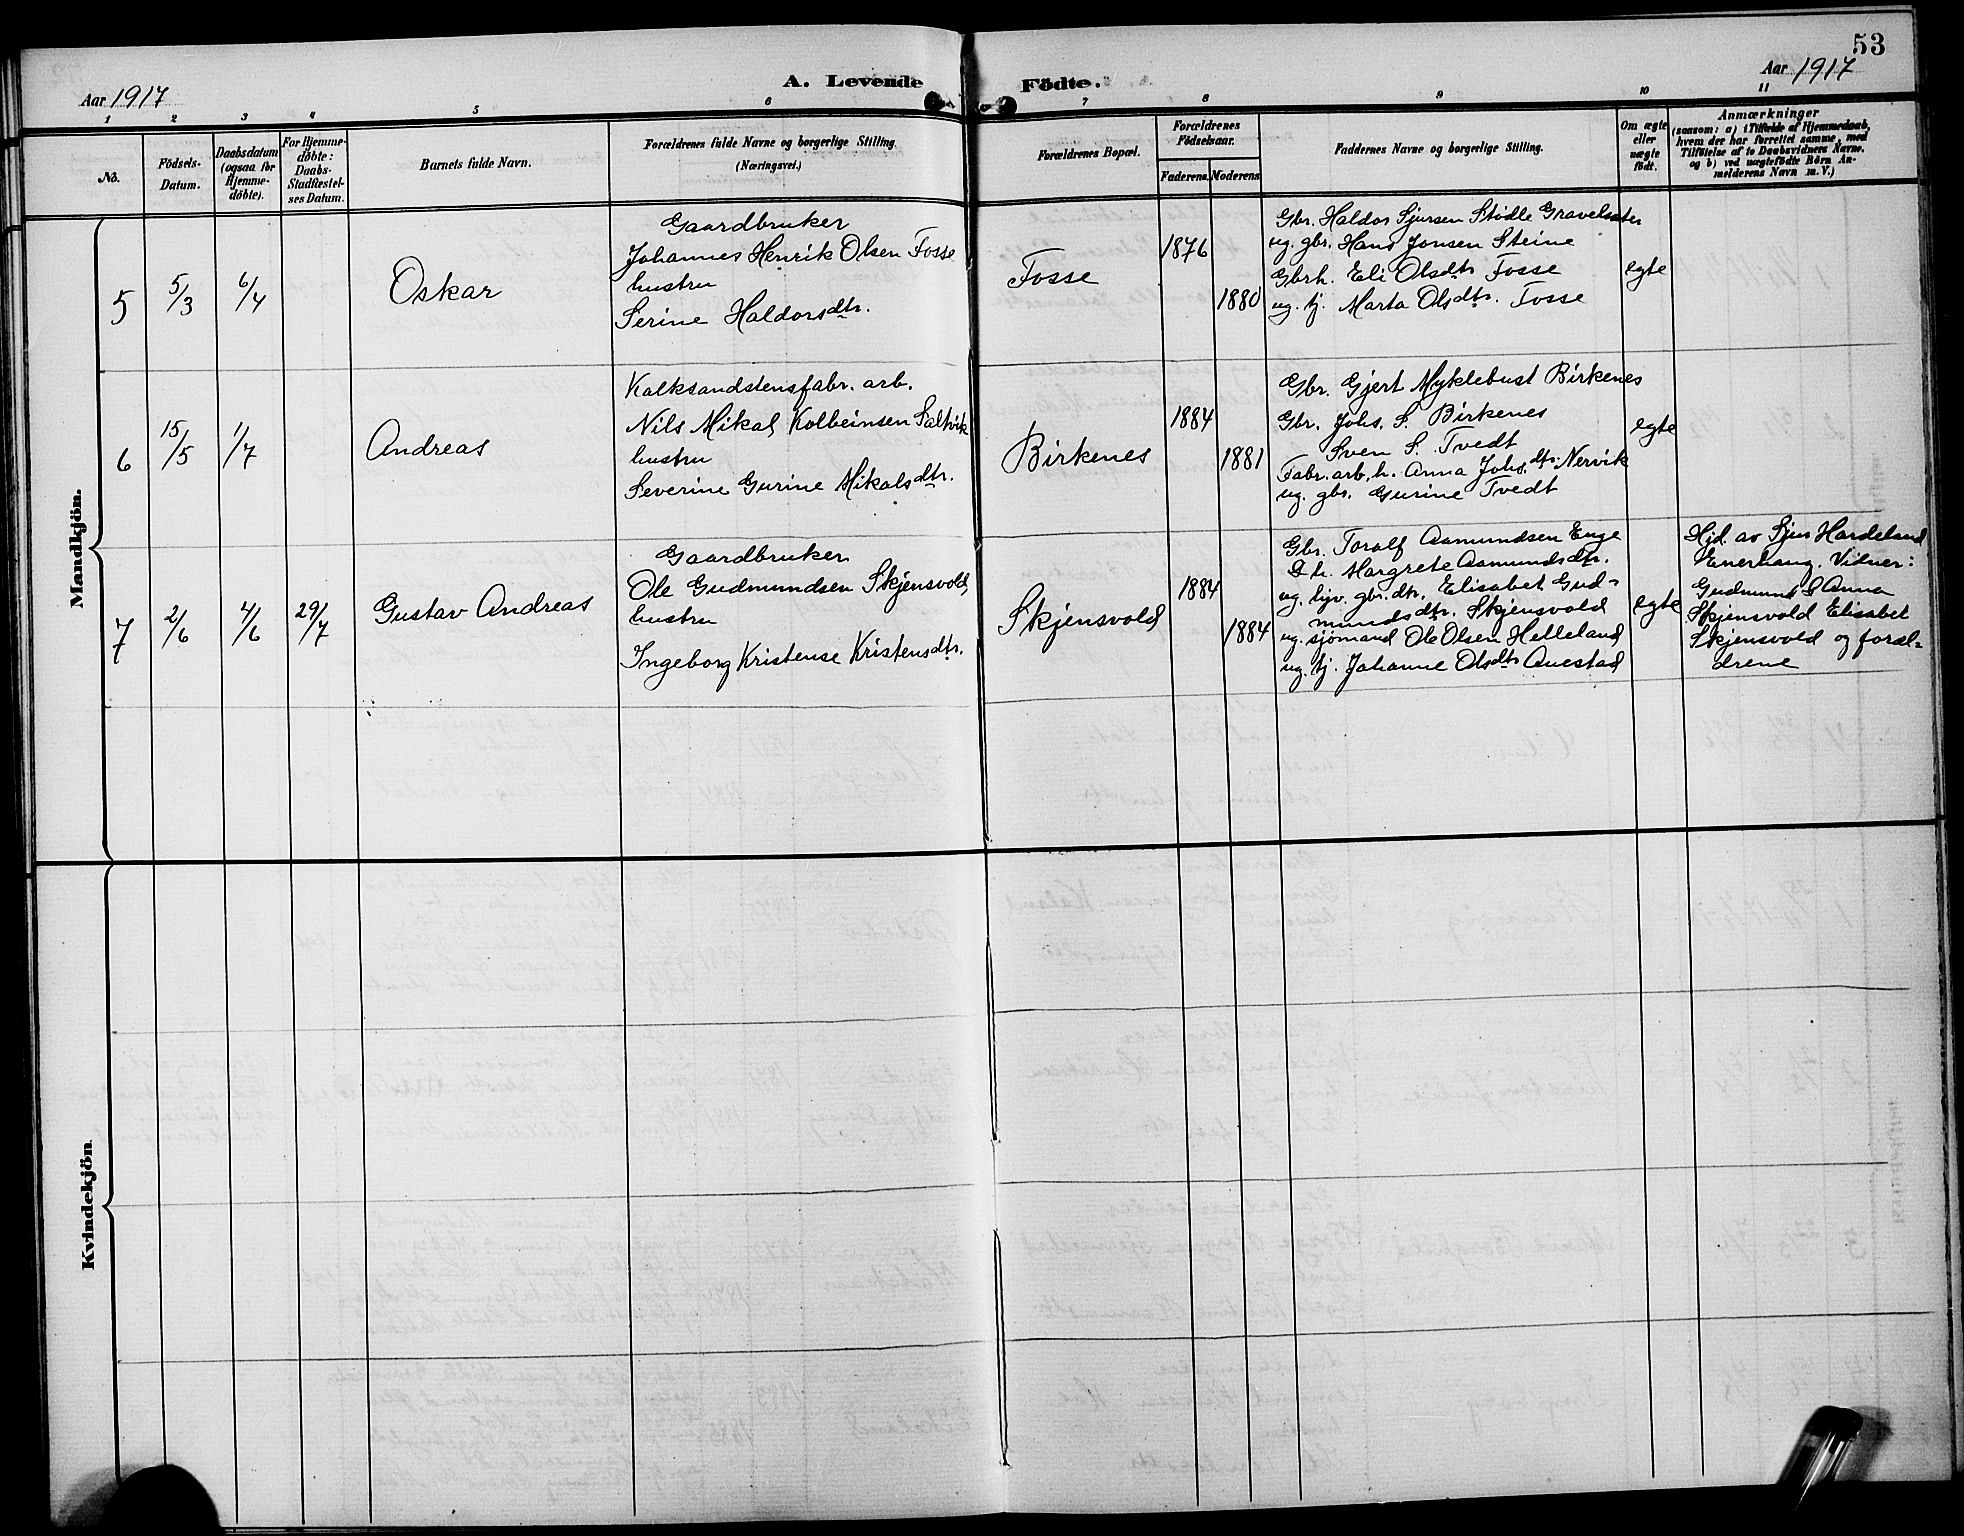 53
Aar 1917
A. Levende Födte.
Aar 1917
1 2 3 4 5 6 7 8 9 10 11
No.
Födsels-
Datum.
Daabsdatum
(ogsaa for
Hjemme-
döbte).
For Hjemme-
döbte:
Daabs-
Stadfæstel-
ses Datum.
Barnets fulde Navn.
Forældrenes fulde Navne og borgerlige Stilling.
(Næringsvei.)
Forældrenes Bopæl.
Forældrenes
Födselsaar.
Faderens.
Moderens.
Faddernes Navne og borgerlige Stilling.
Om ægte
eller
uægte
födt.
Anmærkninger
(saasom: a) i Tilfælde af Hjemmedaab,
hvem der har forrettet samme, med
Tilföielse af to Daabsvidners Navne.
og b) ved uægtefödte Börn An-
melderens Navn m. V.)
Mandkjön.
5
5/3
6/4
Oskar
Gaardbruker
Johannes Henrik Olsen Fosse
hustru
Serine Haldorsdtr.
Fosse
1876
1880
Gbr. Haldor Sjursen Stødle Gravelsæter
ug. gbr. Hans Jonsen Steine
Gbrh. Eli Olsdtr Fosse
ug. tj. Marta Olsdtr. Fosse
egte
6
15/5
1/7
Andreas
Kalksandstensfabr. arb.
Nils Mikal Kolbeinsen Saltvik
hustru
Severine Gurine Mikalsdtr.
Birkenes
1884
1881
Gbr. Gjert Myklebust Birkenes
Gbr. Johs. S. Birkenes
Sven S. Tvedt
Fabr. arb. h. Anna Johs.dtr. Nervik
ug. gbr. Gurine Tvedt
egte
7
2/6
4/6
29/7
Gustav Andreas
Gaardbruker
Ole Gudmundsen Skjensvold
hustru
Ingeborg Kristense Kristensdtr.
Skjensvold
1884
1884
Gbr. Toralf Aamundsen Enge
& h. Margrete Aamundsdtr.
ug. hjv. gbr. dtr. Elisabet Gud-
mundsdtr. Skjensvold
ug. sjömand Ole Olsen Helleland
ug. tj. Johanne Olsdtr Auestad
egte
Hjd. av Sjur Hardeland
Enerhaug. Vidner:
Gudmund & Anna
Skjensvold Elisabet
Skjensvold og foræl-
drene
Kvindekjön